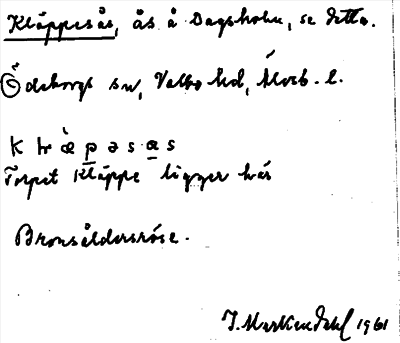 Kläppesås, ås å Dagsholm, se detta.
Ödeborgs sn, Valbo hd, Älvsb. l.
k ḷ æ̀ p ə s a s
Torpet Kläppe ligger här
Bronsåldersröse.
J. 1961